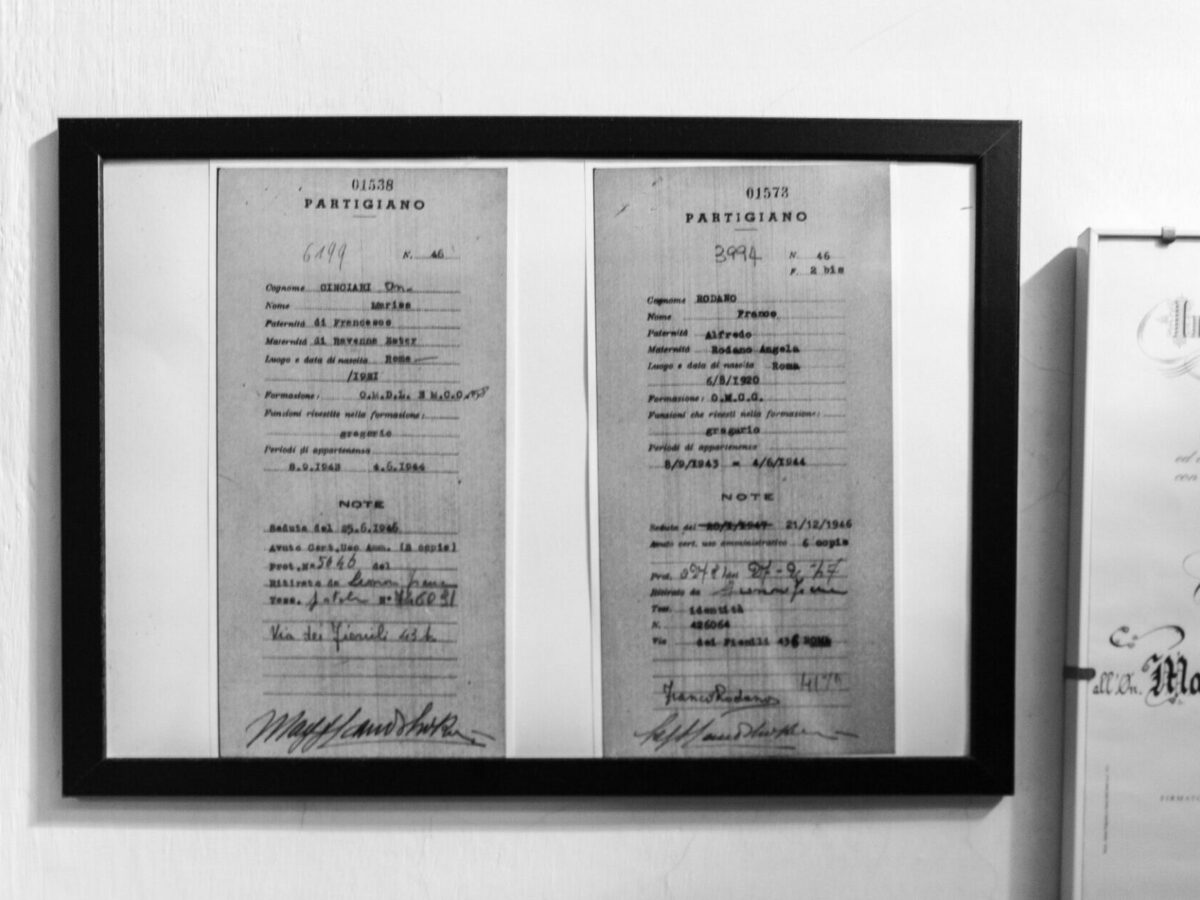 01538
PARTIGIANO
6199 N. 46
Cognome CINCIARI On.
Nome Marisa
Paternità di Francesco
Maternità di Ravenna Ester
Luogo e data di nascita Roma
/1921
Formazione: O.M.D.L. E M.C.C.
Funzioni rivestite nella formazione:
gregario
Periodi di appartenenza
8.9.1943 4.6.1944
NOTE
Seduta del 25.6.1946
Avuto Cert.Uso Amm. (2 copie)
Prot.N° 5046 del
Ritirato da
Tess. N°
Via dei Fienili 43
01573
PARTIGIANO
3994 N. 46
F. 2 bis
Cognome RODANO
Nome Franco
Paternità Alfredo
Maternità Rodano Angela
Luogo e data di nascita Roma
6/8/1920
Formazione: O.M.C.C.
Funzioni che rivestì nella formazione:
gregario
Periodi di appartenenza
8/9/1943 = 4/6/1944
NOTE
Seduta del 20/1/1947 21/12/1946
Avuto cert. uso amministrativo 6 copie
Prot.
Ritirato da
Tess. identità
N. 426064
Via dei Fienili 43 ROMA
4175
Franco Rodano
all'On. Ma